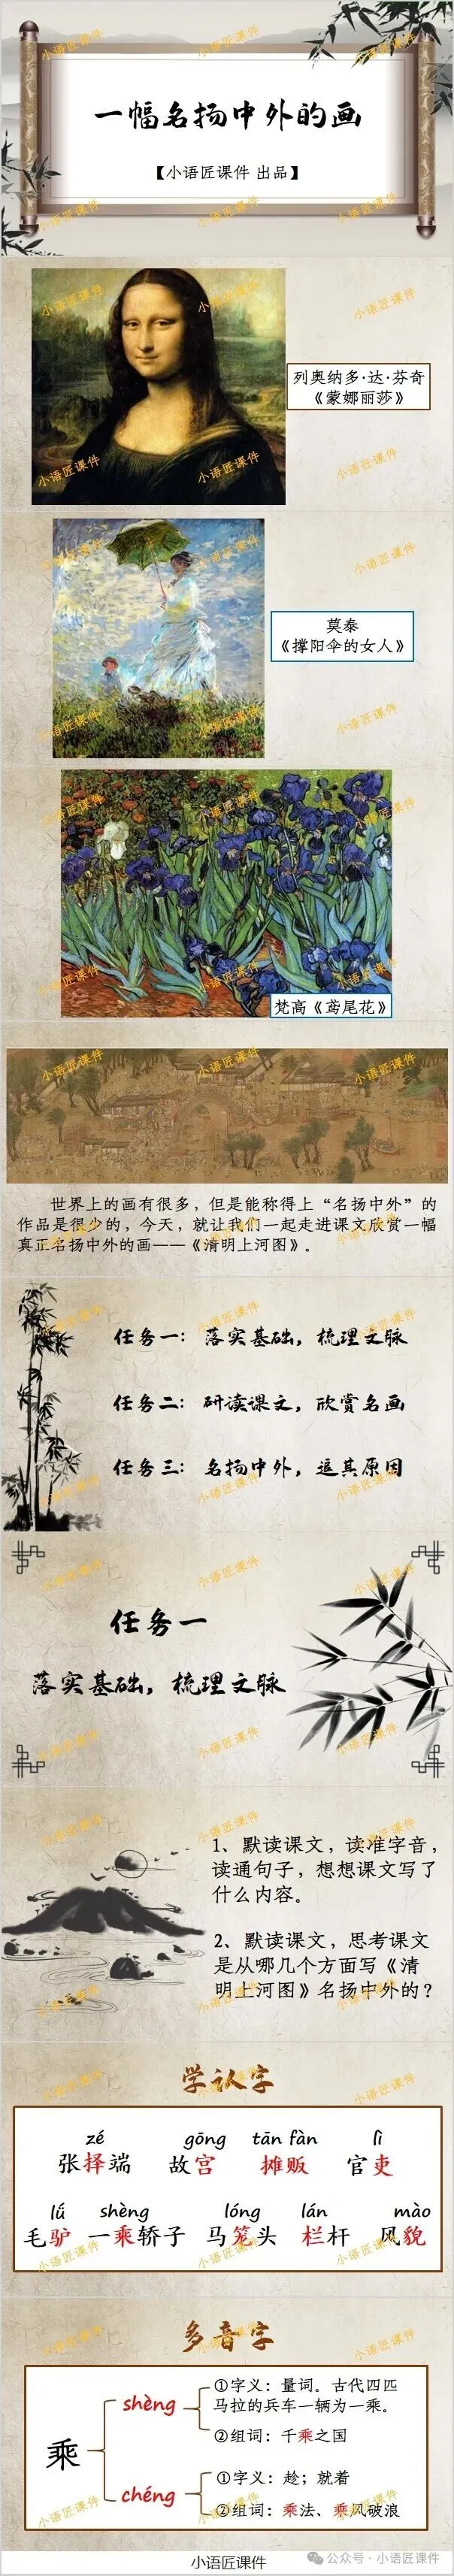 一幅名扬中外的画
【小语匠课件 出品】
列奥纳多·达·芬奇
《蒙娜丽莎》
莫泰
《撑阳伞的女人》
梵高《鸢尾花》
世界上的画有很多，但是能称得上“名扬中外”的
作品是很少的，今天，就让我们一起走进课文欣赏一幅
真正名扬中外的画——《清明上河图》。
任务一：落实基础，梳理文脉
任务二：研读课文，欣赏名画
任务三：名扬中外，追其原因
任务一
落实基础，梳理文脉
1、默读课文，读准字音，
读通句子，想想课文写了
什么内容。
2、默读课文，思考课文
是从哪几个方面写《清
明上河图》名扬中外的？
学认字
zé gōng tān fàn lì
张择端 故宫 摊贩 官吏
lǘ shèng lóng lán mào
毛驴 一乘轿子 马笼头 栏杆 风貌
多音字
乘
shèng
①字义：量词。古代四匹
马拉的兵车一辆为一乘。
②组词：千乘之国
chéng
①字义：趁；就着
②组词：乘法、乘风破浪
小语匠课件
公众号·小语匠课件